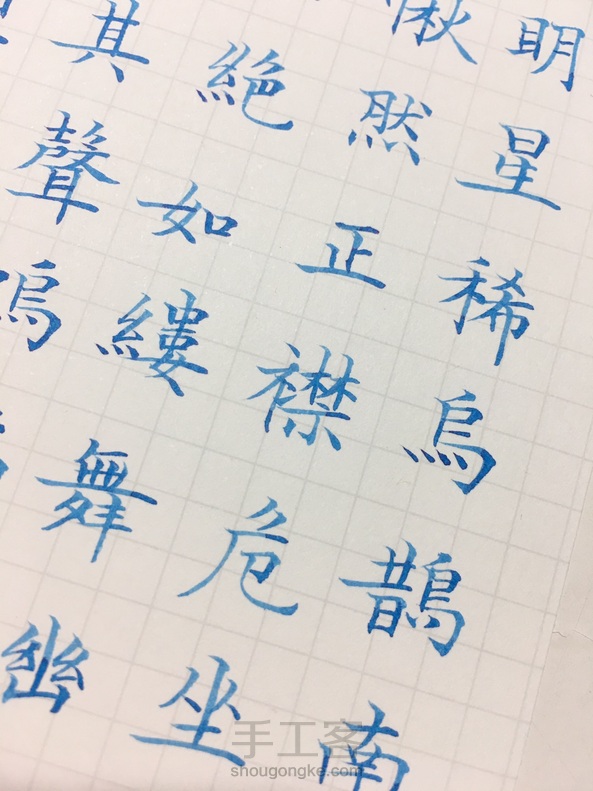 明星稀烏鵲南
愀然正襟危坐
絶如縷舞幽
其聲嗚
手工客
shougongke.com